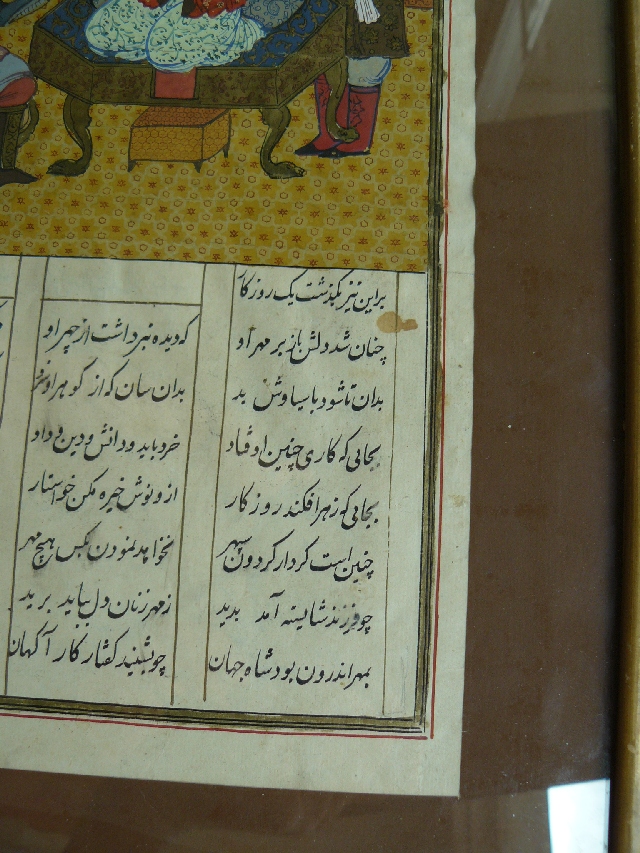 براین نیز بگذشت یک روزگار
چنان شد دلش باز بر مهر او
که دیده نبرداشت از چهر او
بدان تا شود با سیاوش بد
بدان سان که از گوهر او
بجایی که کاری چنین اوفتاد
خرد باید و دانش و دین و داد
بجایی که زهر افکند روزگار
ازو نوش خیره مکن خواستار
چنین است کردار گردون سپهر
نخواهد نمودن بکس هیچ مهر
چو فرزند شایسته آمد پدید
ز مهر زنان دل بباید برید
بمهر اندرون بود شاه جهان
چو بشنید گفتار کار آگهان